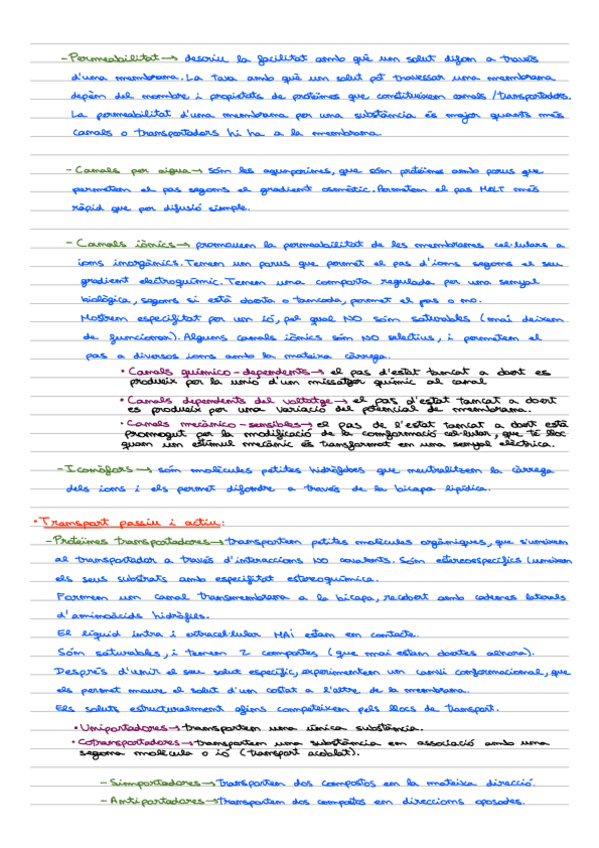 - Permeabilitat → descriu la facilitat amb què un solut difon a través
d'una membrana. La taxa amb què un solut pot travessar una membrana
depèn del nombre i propietats de proteïnes que constitueixen canals / transportadors.
La permeabilitat d'una membrana per una substància és major quants més
canals o transportadors hi ha a la membrana.
- Canals per aigua → són les aquaporines, que són proteïnes amb porus que
permeten el pas segons el gradient osmòtic. Permeten el pas MOLT més
ràpid que per difusió simple.
- Canals iònics → promouen la permeabilitat de les membranes cel·lulars a
ions inorgànics. Tenen un porus que permet el pas d'ions segons el seu
gradient electroquímic. Tenen una comporta regulada per una senyal
biològica, segons si està oberta o tancada, permet el pas o no.
Mostren especifitat per un ió, pel qual NO són saturables (mai deixen
de funcionar). Alguns canals iònics són NO selectius, i permeten el
pas a diversos ions amb la mateixa càrrega.
• Canals químico - dependents → el pas d'estat tancat a obert es
produeix per la unió d'un missatger químic al canal
• Canals dependents del voltatge → el pas d'estat tancat a obert
es produeix per una variació del potencial de membrana.
• Canals mecànico - sensibles → el pas de l'estat tancat a obert està
promogut per la modificació de la conformació cel·lular, que té lloc
quan un estímul mecànic és transformat en una senyal elèctrica.
- Ionòfors → són molècules petites hidròfobes que neutralitzen la càrrega
dels ions i els permet difondre a través de la bicapa lipídica.
• Transport passiu i actiu:
- Proteïnes transportadores → transporten petites molècules orgàniques, que s'uneixen
al transportador a través d'interaccions NO covalents. Són estereoespecífics (uneixen
els seus substrats amb especifitat estereoquímica.
Formen un canal transmembrana a la bicapa, recobert amb cadenes laterals
d'aminoàcids hidròfils.
El líquid intra i extracel·lular MAI estan en contacte.
Són saturables, i tenen 2 comportes (que mai estan obertes alhora).
Després d'unir el seu solut específic, experimenten un canvi conformacional, que
els permet moure el solut d'un costat a l'altre de la membrana.
Els soluts estructuralment afins competeixen pels llocs de transport.
• Uniportadores → transporten una única substància.
• Cotransportadores → transporten una substància en associació amb una
segona molècula o ió (transport acoblat).
- Simportadores → Transporten dos compostos en la mateixa direcció.
- Antiportadores → Transporten dos compostos en direccions oposades.